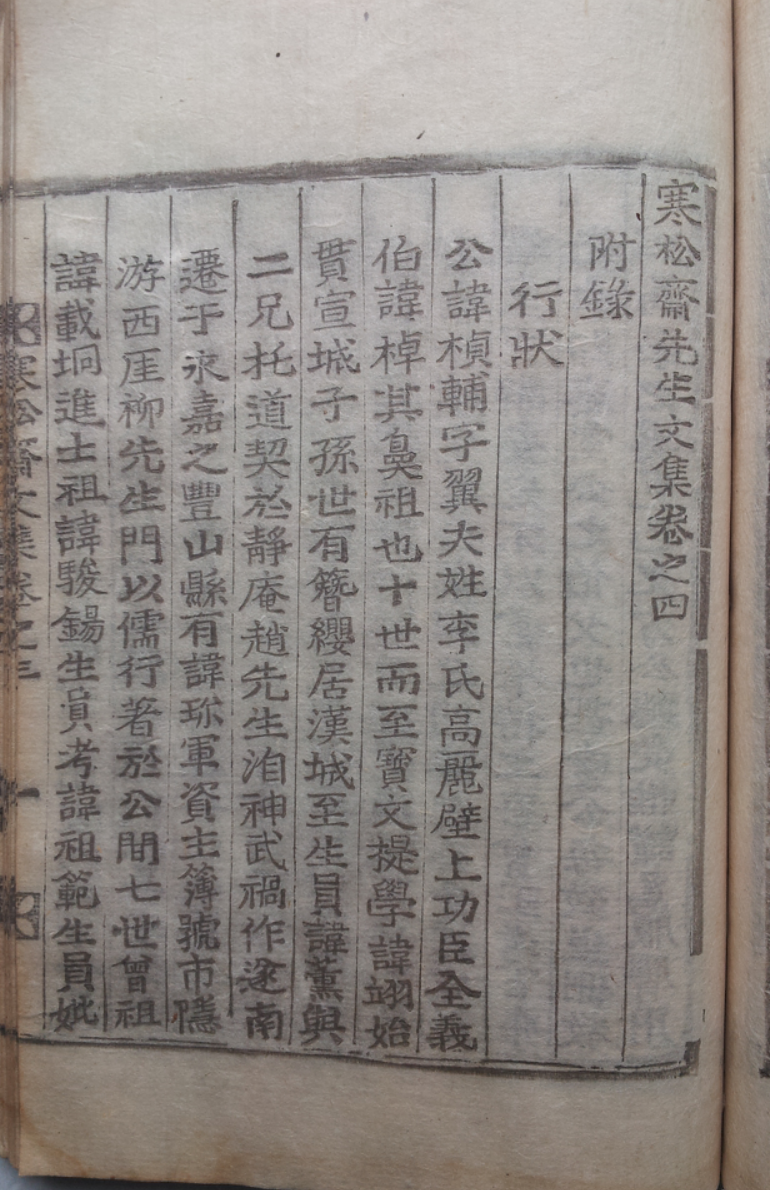 寒松齋先生文集卷之四
附錄
行狀
公諱楨輔字翼夫姓李氏高麗壁上功臣全義
伯諱棹其鼻祖也十世而至寶文提學諱翊始
貫宣城子孫世有簪纓居漢城至生員諱薰與
二兄托道契於靜庵趙先生洎神武禍作遂南
遷于永嘉之豐山縣有諱珎軍資主簿號市隱
游西厓柳先生門以儒行著於公間七世曾祖
諱載坰進士祖諱駿錫生員考諱祖範生員妣
寒松齋文集卷之三 一